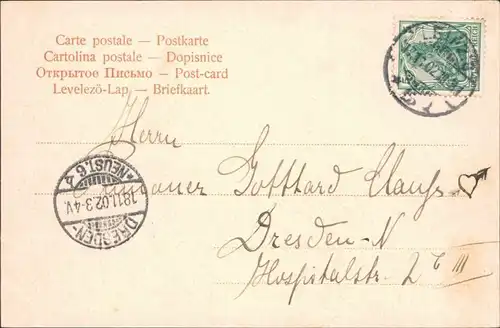 Carte postale — Postkarte
Cartolina postale — Dopisnice
Открытое Письмо — Post-card
Levelező-Lap — Briefkaart.
Herrn
Gotthard
Dresden-N
Hospitalstr. 2 III
DRESDEN-
18.11.02.3-4V.
*NEUST.6